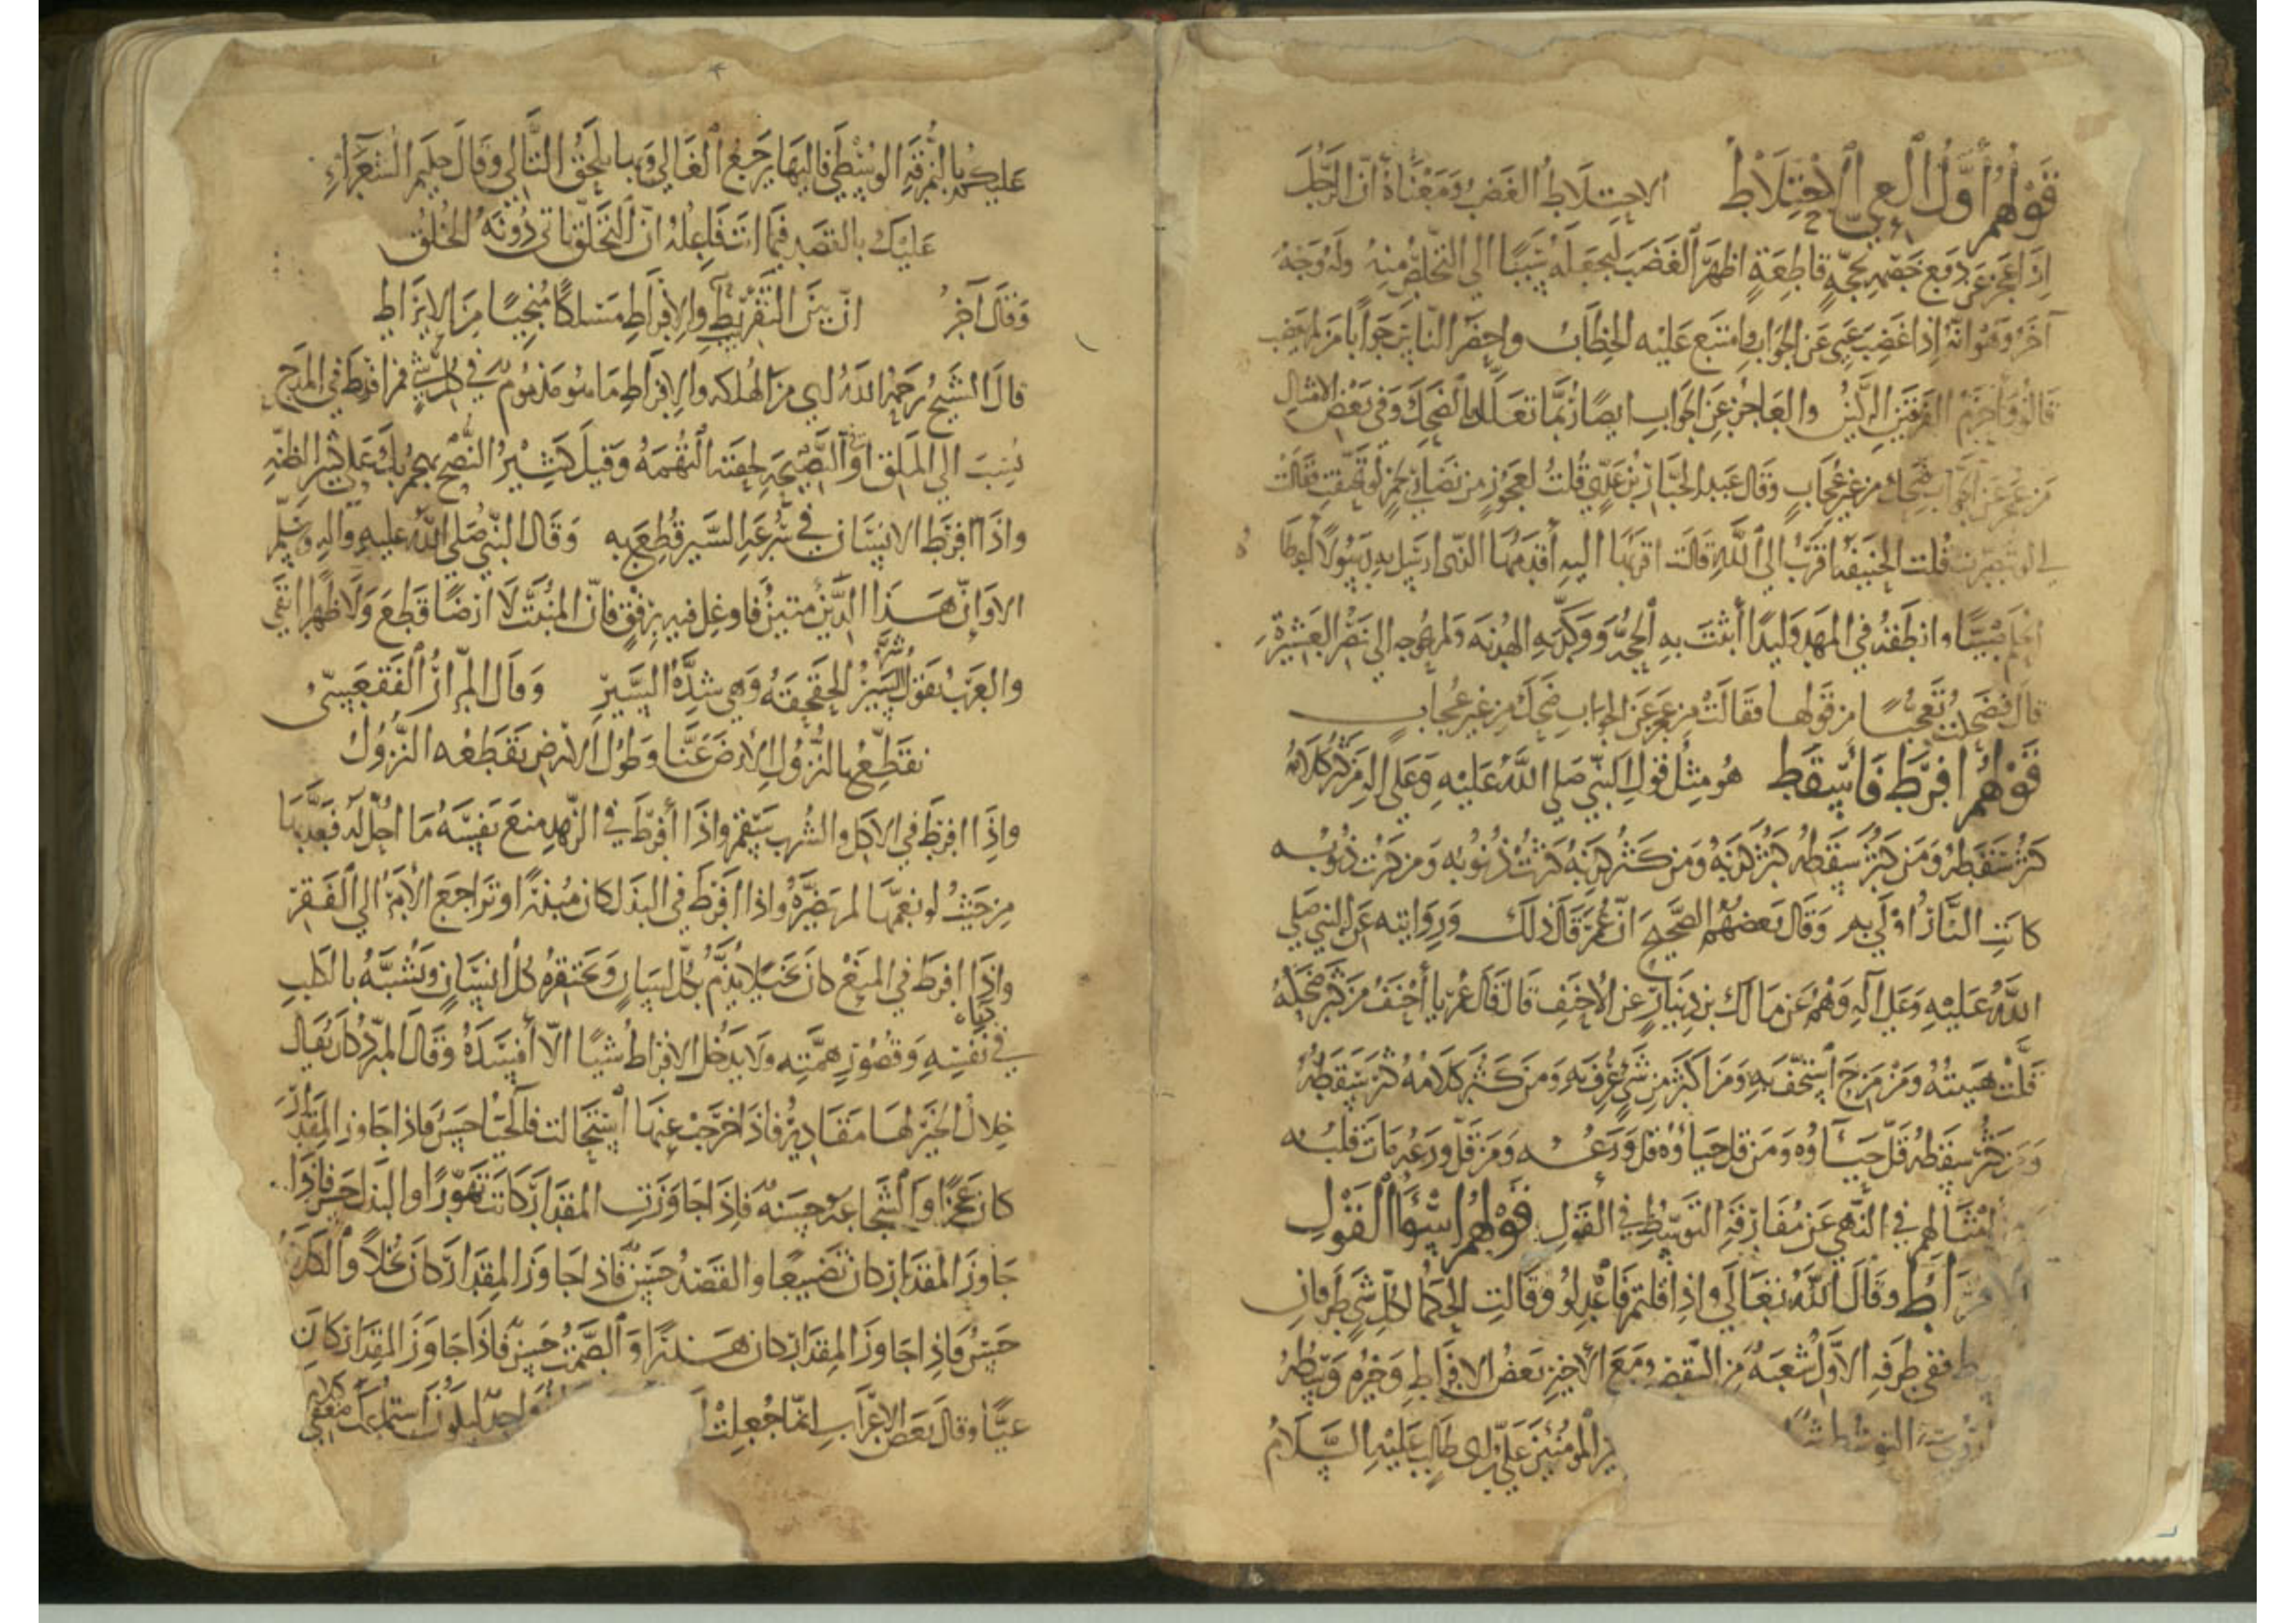 قولهم أول العي الاختلاط الاختلاط الغضب ومعناه أن الرجل
إذا عجز عن دفع خصمه بحجة قاطعة أظهر الغضب ليجعله سببا إلى التخلص منه وله وجه
آخر وهو أنه إذا غضب عيي عن الجواب وامتنع عليه الخطاب واحضر الناس جوابا من لم يغضب
قالوا وأحزم الفريقين الركين والعاجز عن الجواب أيضا ربما تعلل بالضحك وفي بعض الأمثال
من عجز عن الجواب ضحك من غير عجاب وقال عبد الجبار بن عدي قلت لعجوز من نصارى فقالت
قلت الحنيفية أقرب إلى الله قالت أقربها إليه أقدمها الذي أرسل به رسولا أعطاه
صبيا وأنطقه في المهد وليدا أثبت به الحجة ووكد به ولم يحوجه إلى نصر العشيرة
قال فضحكت تعجبا من قولها فقالت من عجز عن الجواب ضحك من غير عجاب
قولهم أفرط فأسقط هو مثل قول النبي صلى الله عليه وعلى آله من كثر كلامه
كثر سقطه ومن كثر سقطه كثر كذبه ومن كثر كذبه كثرت ذنوبه ومن كثرت ذنوبه
كانت النار أولى به وقال بعضهم الصحيح أن عمر قال ذلك وروايته عن النبي صلى
الله عليه وعلى آله وهم عن مالك بن دينار عن الأحنف قال قال عمر يا أحنف من كثر ضحكه
قلت هيبته ومن مزح استخف به ومن أكثر من شي عرف به ومن كثر كلامه كثر سقطه
ومن كثر سقطه قل حياؤه ومن قل حياؤه قل ورعه ومن قل ورعه مات قلبه
أمثالهم في النهي عن مفارقة التوسط في القول قولهم اسوأ القول
الافراط وقال الله تعالى وإذا قلتم فاعدلوا وقالت الحكما لكل شي طرفان
ففي طرفه الأول شعبة من النقص ومع الأخير بعض الافراط وخيره وسطه
المؤمنين علي بن أبي طالب عليه السلام
عليكم بالنمرقة الوسطى فاليها يرجع الغالي وبها يلحق التالي وقال حليم الشعراء
عليك بالقصد فيما أنت فاعله إن التخلق يأتي دونه الخلق
وقال آخر إن بين التفريط والإفراط مسلكا منجيا من الإيراط
قال الشيخ رحمه الله أي من الهلكة والإفراط مذموم في كل شي فمن أفرط في المدح
نسب إلى الملق أو في النصيحة لحقته التهمة وقيل كثير النصح يهجم بك على كثير الظنة
وإذا أفرط الإنسان في سرعة السير قطع به وقال النبي صلى الله عليه وآله وسلم
ألا وإن هذا الدين متين فأوغل فيه برفق فإن المنبت لا أرضا قطع ولا ظهرا أبقى
والعرب تقول شر السير الحقحقة وهي شدة السير وقال المرار الفقعسي
نقطع بالنزول الأرض عنا وطول الأرض يقطعه النزول
وإذا أفرط في الأكل والشرب سقم وإذا أفرط في الزهد منع نفسه ما أحل له فعذبها
من حيث لو نعمها لم يضره وإذا أفرط في البذل كان مبذرا وتراجع الأمر إلى الفقر
وإذا أفرط في المنع كان بخيلا يذم بكل لسان ويحتقره كل إنسان ويشبه بالكلب
في دناءة نفسه وقصور همته ولا يدخل الإفراط شيئا إلا أفسده وقال المبرد كان يقال
خلال الخير لها مقادير فإذا خرجت عنها استحالت فالحيا حسن فإذا جاوز المقدار
كان عجزا والشجاعة حسنة فإذا جاوزت المقدار كانت تهورا والبذل حسن فإذا
جاوز المقدار كان تضييعا والقصد حسن فإذا جاوز المقدار كان بخلا والكلام
حسن فإذا جاوز المقدار كان هذرا والصمت حسن فإذا جاوز المقدار كان
عيا وقال بعض الأعراب إنما جعلت واحد ليكون استماعك ضعفي كلامك